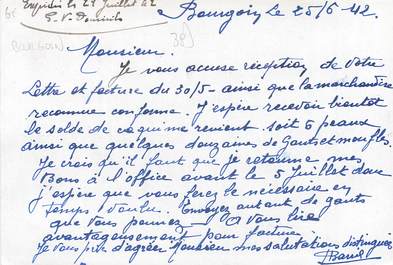 Expédié le 29 Juillet 42
Bourgoin Le 25/6 42
Bourgoin
(38)
Monsieur.
Je vous accuse réception de votre
Lettre et facture du 30/5 - ainsi que la marchandise
reconnue conforme. J'espère recevoir bientôt
le solde de ce qui me revient. soit 6 peaux
ainsi que quelques douzaines de Gants et moufles.
Je crois qu'il faut que je retourne mes
Bons à l'office avant le 5 Juillet donc
j'espère que vous ferez le nécessaire en
temps voulu. Envoyez autant de gants
que vous pourrez - à vous lire
avantageusement pour facture
Je vous prie d'agréer Monsieur mes salutations distinguées